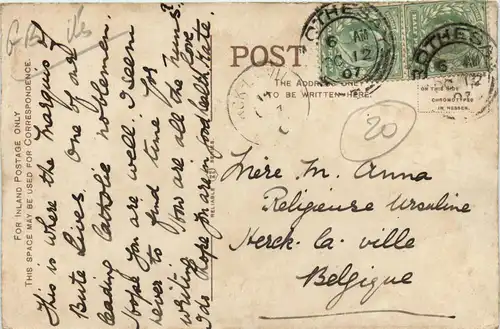 G B iles
FOR INLAND POSTAGE ONLY
THIS SPACE MAY BE USED FOR CORRESPONDENCE.
This is where the Marquis of
Bute Lives. One of our
leading Catholic noblemen.
Hope you are well. I seem
never to find time for
writing. How are all the nuns?
I do hope you are in good health
love
Kate.
RELIABLE
POST
THE ADDRESS ONLY
TO BE WRITTEN HERE.
ROTHESAY
6 AM
OC 12
07
ROTHESAY
6
OC 12
07
ON THIS SIDE
CHROMOTYPED
IN HESSEN.
20
Mere M. Anna
Religieuse Ursuline
Herck-la-ville
Belgique